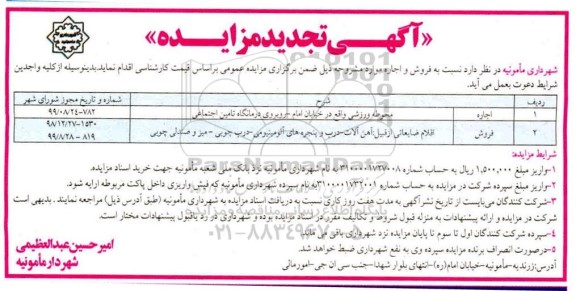 «آگهی تجدید مزایده»
شهرداری مأمونیه در نظر دارد نسبت به فروش و اجاره موارد مشروحه ذیل ضمن برگزاری مزایده عمومی براساس قیمت کارشناسی اقدام نماید.بدینوسیله ازکلیه واجدین
شرایط دعوت بعمل می آید.
ردیف شرح شماره و تاریخ مجوز شورای شهر
۱ اجاره محوطه ورزشی واقع در خیابان امام -روبروی درمانگاه تامین اجتماعی ۷۸۲-۹۹/۰۸/۲۴
۲ فروش اقلام ضایعاتی ازقبیل:آهن آلات-درب و پنجره های آلومینیومی-درب چوبی - میز و صندلی چوبی ۱۵۳۰-۹۸/۱۲/۲۷
۸۱۹ - ۹۹/۸/۲۸
شرایط مزایده:
۱-واریز مبلغ ۱,۵۰۰,۰۰۰ ریال به حساب شماره ۳۱۰۰۰۰۱۷۲۷۰۰۸ به نام شهرداری مأمونیه نزد بانک ملی شعبه مأمونیه جهت خرید اسناد مزایده.
۲-واریز مبلغ سپرده شرکت در مزایده به حساب شماره ۳۱۰۰۰۰۱۷۳۲۰۰۱ به نام سپرده شهرداری مأمونیه که فیش واریزی داخل پاکت مربوطه ارایه شود.
۳-شرکت کنندگان می‌بایست از تاریخ نشرآگهی به مدت هفت روز کاری نسبت به دریافت اسناد مزایده به شهرداری مأمونیه (طبق آدرس ذیل) مراجعه نمایند . بدیهی است
شرکت در مزایده و ارائه پیشنهادات به منزله قبول شروط و تکالیف مقرر در اسناد مزایده بوده و شهرداری در رد یا قبول پیشنهادات مختار است.
۴-سپرده شرکت کنندگان اول تا سوم تا پایان مزایده نزد شهرداری باقی می ماند.
۵-درصورت انصراف برنده مزایده سپرده وی به نفع شهرداری ضبط خواهد شد.
آدرس:زرندیه-مأمونیه-خیابان امام(ره)-انتهای بلوار شهدا-جنب سی ان جی-امورمالی
امیرحسین عبدالعظیمی
شهردار مأمونیه